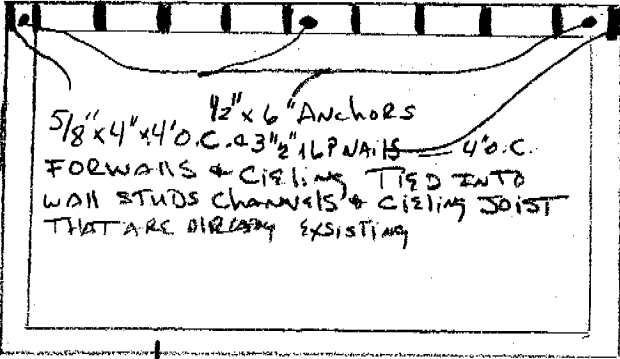 1/2" x 6" ANChORS
5/8" x 4" x 4' O.C. & 3" 1/2" 16P NAilS — 4' O.C.
FORWAllS & CiEliNg TiED INTO
WAll STUDS ChANNElS & CiEliNg JOiST
THAT ARE AlREADy EXSiSTiNg